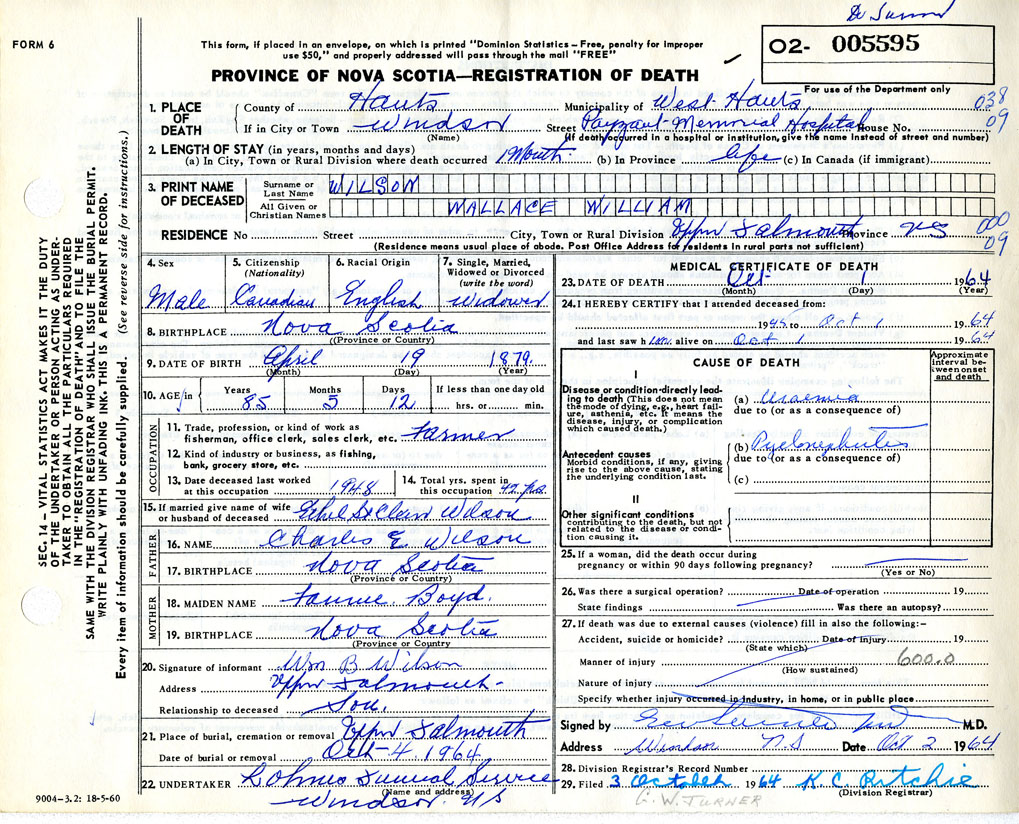 FORM 6
This form, if placed in an envelope, on which is printed "Dominion Statistics – Free, penalty for improper
use $50," and properly addressed will pass through the mail "FREE"
PROVINCE OF NOVA SCOTIA—REGISTRATION OF DEATH
02- 005595
For use of the Department only
038
09
1. PLACE OF DEATH
County of Hants Municipality of West Hants
If in City or Town Windsor Street Payzant Memorial Hospital House No.
(Name) (If death occurred in a hospital or institution, give the name instead of street and number)
2. LENGTH OF STAY (in years, months and days)
(a) In City, Town or Rural Division where death occurred 1 Month. (b) In Province life (c) In Canada (if immigrant)
3. PRINT NAME OF DECEASED
Surname or Last Name WILSON
All Given or Christian Names WALLACE WILLIAM
000
09
RESIDENCE No Street City, Town or Rural Division Uppr Falmouth Province NS
(Residence means usual place of abode. Post Office Address for residents in rural parts not sufficient)
4. Sex Male
5. Citizenship (Nationality) Canadian
6. Racial Origin English
7. Single, Married, Widowed or Divorced (write the word) Widower
8. BIRTHPLACE Nova Scotia
(Province or Country)
9. DATE OF BIRTH April 19 1879.
(Month) (Day) (Year)
10. AGE in Years 85 Months 5 Days 12 If less than one day old hrs. or min.
OCCUPATION
11. Trade, profession, or kind of work as
fisherman, office clerk, sales clerk, etc. Farmer
12. Kind of industry or business, as fishing,
bank, grocery store, etc.
13. Date deceased last worked
at this occupation 1948
14. Total yrs. spent in
this occupation 42 yrs.
15. If married give name of wife
or husband of deceased Ethel St Clair Wilson
FATHER
16. NAME Charles E. Wilson
17. BIRTHPLACE Nova Scotia
(Province or Country)
MOTHER
18. MAIDEN NAME Fannie Boyd.
19. BIRTHPLACE Nova Scotia
(Province or Country)
20. Signature of informant Wm B Wilson
Address Uppr Falmouth
Relationship to deceased Son.
21. Place of burial, cremation or removal Uppr Falmouth
Date of burial or removal Oct 4, 1964
22. UNDERTAKER Cohms Funeral Service
(Name and address)
Windsor NS
MEDICAL CERTIFICATE OF DEATH
23. DATE OF DEATH Oct 1 1964
(Month) (Day) (Year)
24. I HEREBY CERTIFY that I attended deceased from:
1945 to Oct 1 1964
and last saw him alive on Oct 1 1964
CAUSE OF DEATH
Approximate interval between onset and death
I
Disease or condition directly leading to death (This does not mean the mode of dying, e.g., heart failure, asthenia, etc. It means the disease, injury, or complication which caused death.)
(a) Uraemia
due to (or as a consequence of)
Antecedent causes
Morbid conditions, if any, giving rise to the above cause, stating the underlying condition last.
(b) Pyelonephritis
due to (or as a consequence of)
(c)
II
Other significant conditions
contributing to the death, but not related to the disease or condition causing it.
25. If a woman, did the death occur during
pregnancy or within 90 days following pregnancy?
(Yes or No)
26. Was there a surgical operation? Date of operation 19
State findings Was there an autopsy?
27. If death was due to external causes (violence) fill in also the following:–
Accident, suicide or homicide? Date of injury 19
(State which)
Manner of injury 600.0
(How sustained)
Nature of injury
Specify whether injury occurred in industry, in home, or in public place
Signed by M.D.
Address Windsor NS Date Oct 2 1964
28. Division Registrar's Record Number
29. Filed 3 October 1964 K. C. Ritchie
(Division Registrar)
G. W. TURNER
SEC. 14 – VITAL STATISTICS ACT MAKES IT THE DUTY
OF THE UNDERTAKER OR PERSON ACTING AS UNDER-
TAKER TO OBTAIN ALL THE PARTICULARS REQUIRED
IN THE "REGISTRATION OF DEATH" AND TO FILE THE
SAME WITH THE DIVISION REGISTRAR WHO SHALL ISSUE THE BURIAL PERMIT.
WRITE PLAINLY WITH UNFADING INK. THIS IS A PERMANENT RECORD.
Every item of information should be carefully supplied. (See reverse side for instructions.)
9004-3.2: 18-5-60